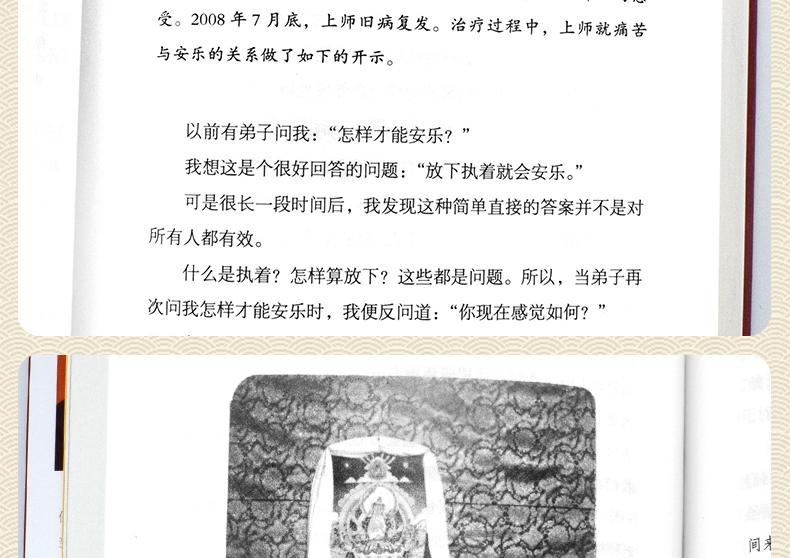 受。2008年7月底，上师旧病复发。治疗过程中，上师就痛苦
与安乐的关系做了如下的开示。
以前有弟子问我：“怎样才能安乐？”
我想这是个很好回答的问题：“放下执着就会安乐。”
可是很长一段时间后，我发现这种简单直接的答案并不是对
所有人都有效。
什么是执着？怎样算放下？这些都是问题。所以，当弟子再
次问我怎样才能安乐时，我便反问道：“你现在感觉如何？”
间来